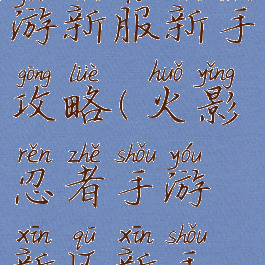 游新服新手
gōng lüè huǒ yǐng
攻略(火影
rěn zhě shǒu yóu
忍者手游
xīn qū xīn shǒu
新区新手